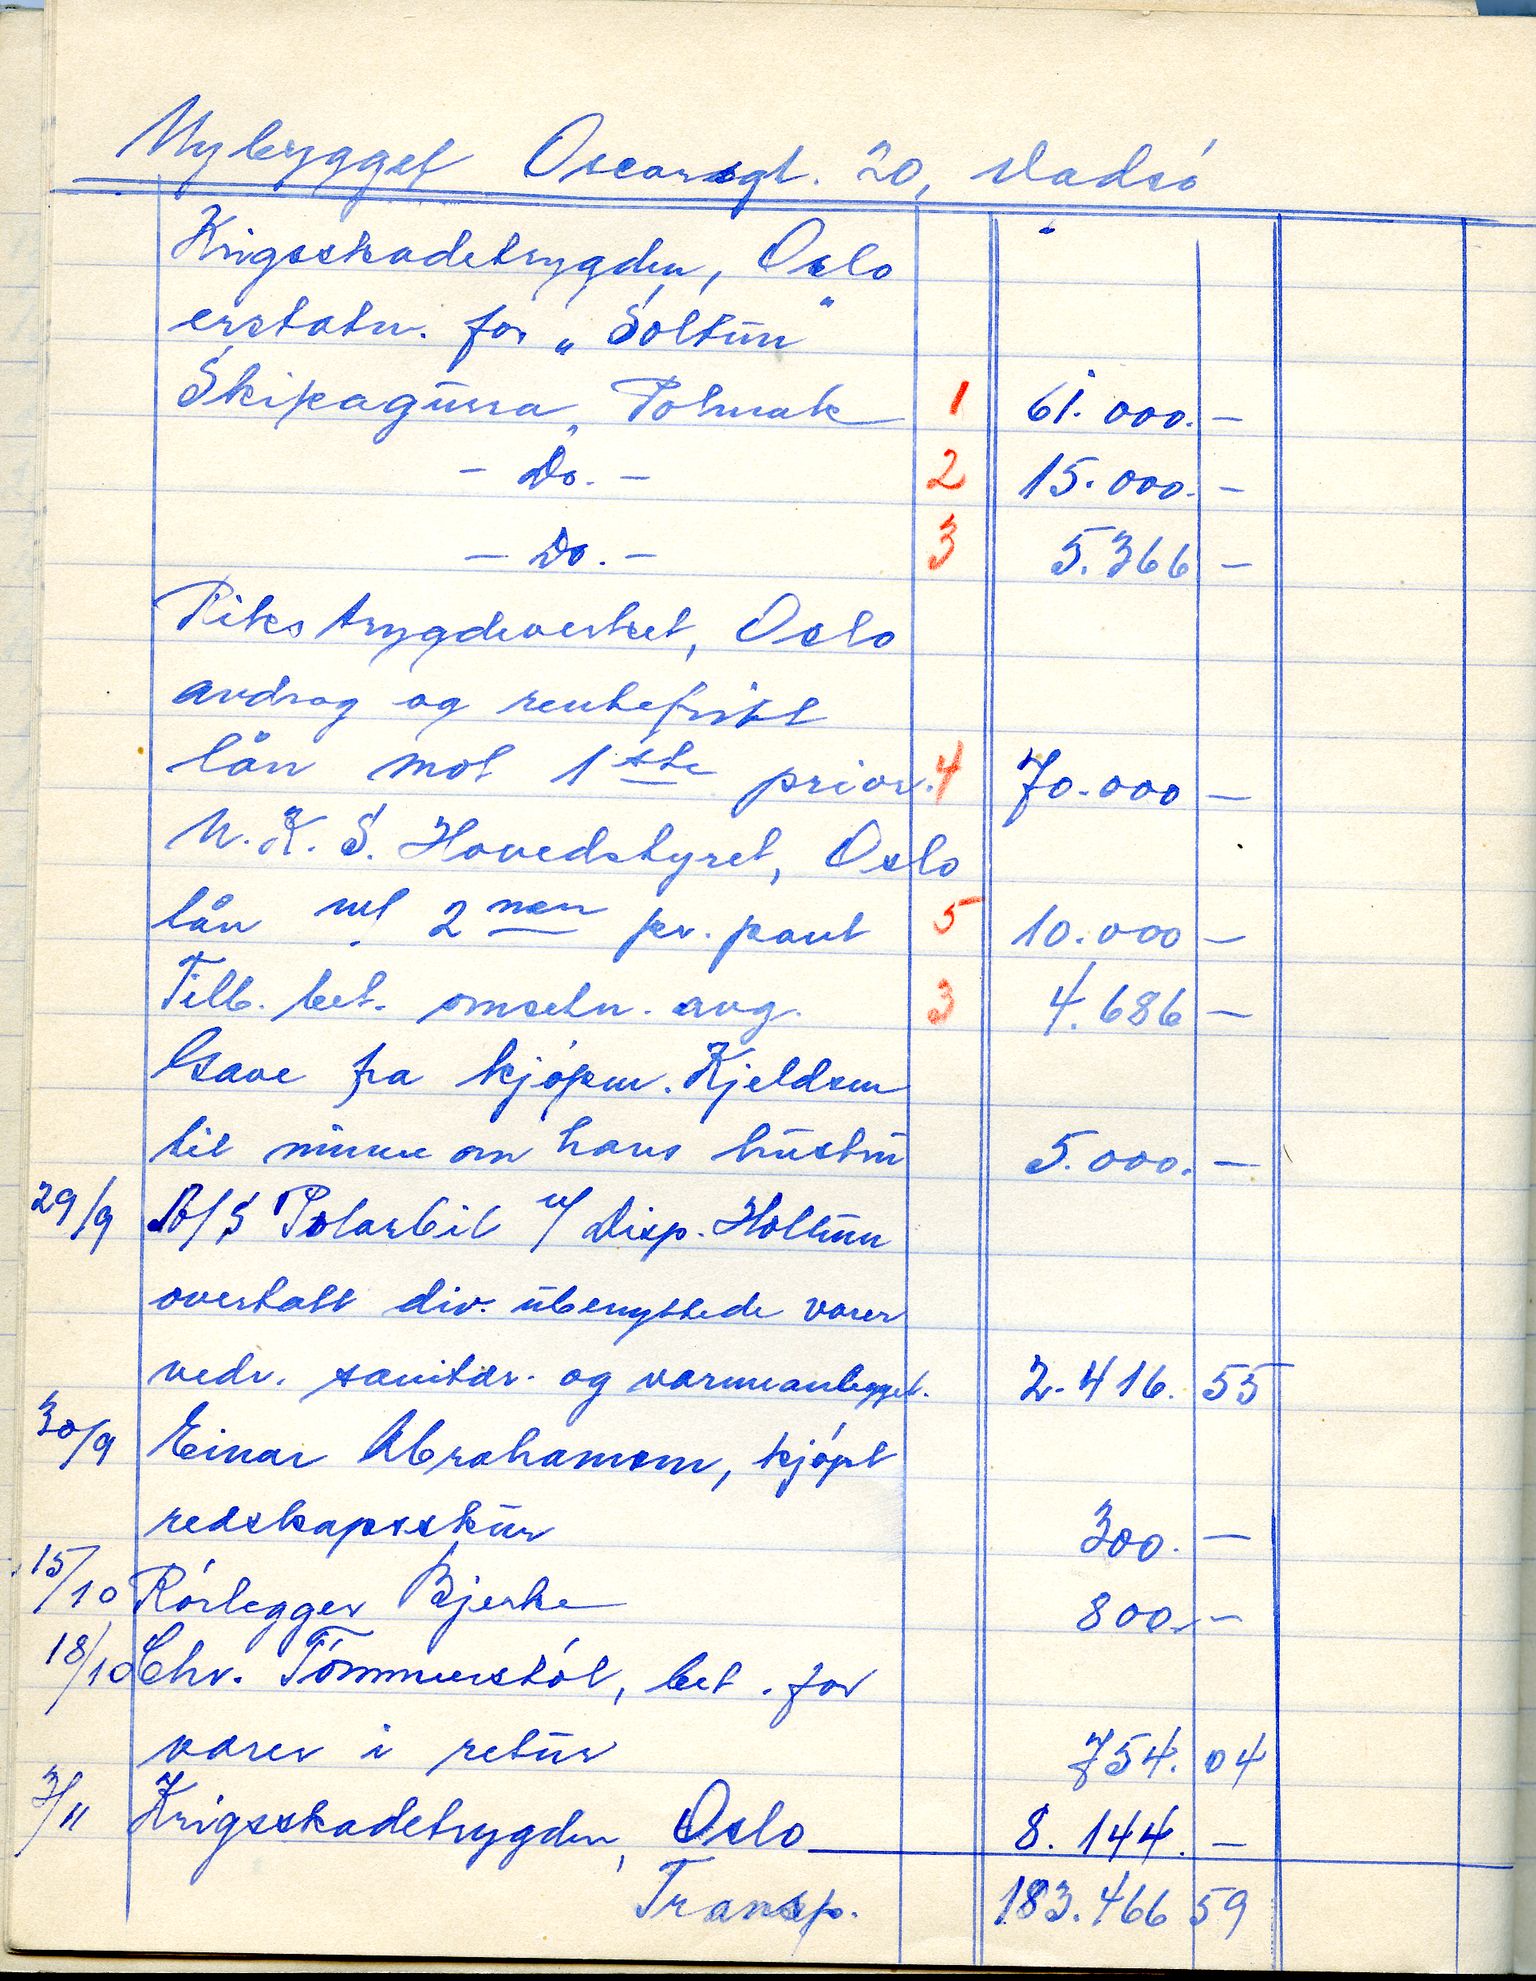 Nybygget Oscarsgt. 20, Vadsö
Krigsskadetrygden, Oslo
erstatn. for „Soltun"
Skipagurra, Polmak 1 61.000.-
- Do. - 2 15.000.-
- Do. - 3 5.366 -
Rikstrygdeverket, Oslo
avdrag og rentefritt
lån mot 1ste prior. 4 70.000 -
N.K.S. Hovedstyret, Oslo
lån m/ 2nen pr. pant 5 10.000 -
Tilb. bet. omsetn. avg. 3 4.686 -
Gave fra kjöpm. Kjeldsen
til minne om hans hustru 5.000.-
29/9 A/S Polarbil v/ Disp. Holtun
overtatt div. ubenyttede varer
vedr. sanitær- og varmeanlegget. 2.416. 55
30/9 Einar Abrahamsen, kjöpt
redskapsskur 300. -
15/10 Rörlegger Bjerke 800.-
18/10 Chr. Tömmerstöl, bet. for
varer i retur 754. 04
3/11 Krigsskadetrygden, Oslo 8.144. -
Transp. 183.466 59